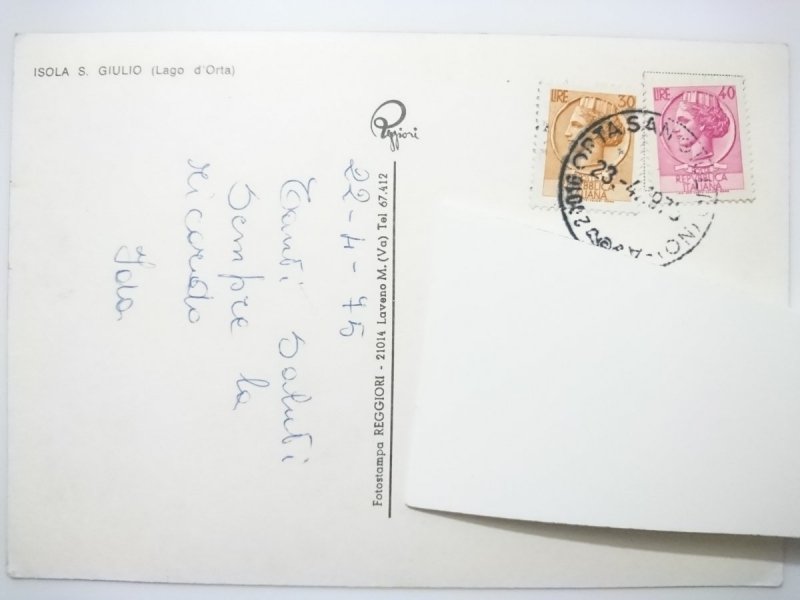 ISOLA S. GIULIO (Lago d'Orta)
Reggiori
LIRE 30
REPUBBLICA
ITALIANA
LIRE 40
REPVBBLICA
ITALIANA
28016 ORTA SAN (NO)
23.-4.1975
22-4-75
Tanti saluti
sempre la
ricordo
Ida
Fotostampa REGGIORI - 21014 Laveno M. (Va) Tel 67.412